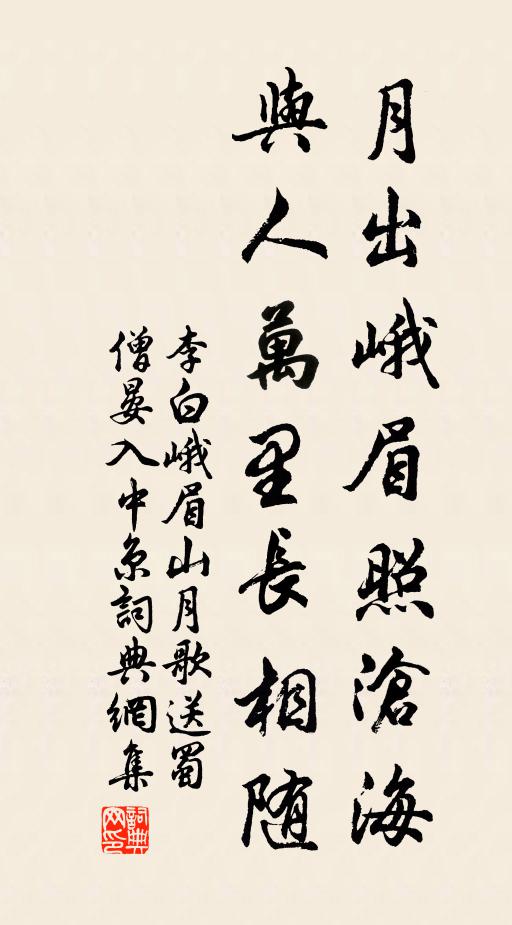 月出峨眉照滄海
與人萬里長相随
李白峨眉山月歌送蜀
僧晏入中京詞典網集
詞典网印